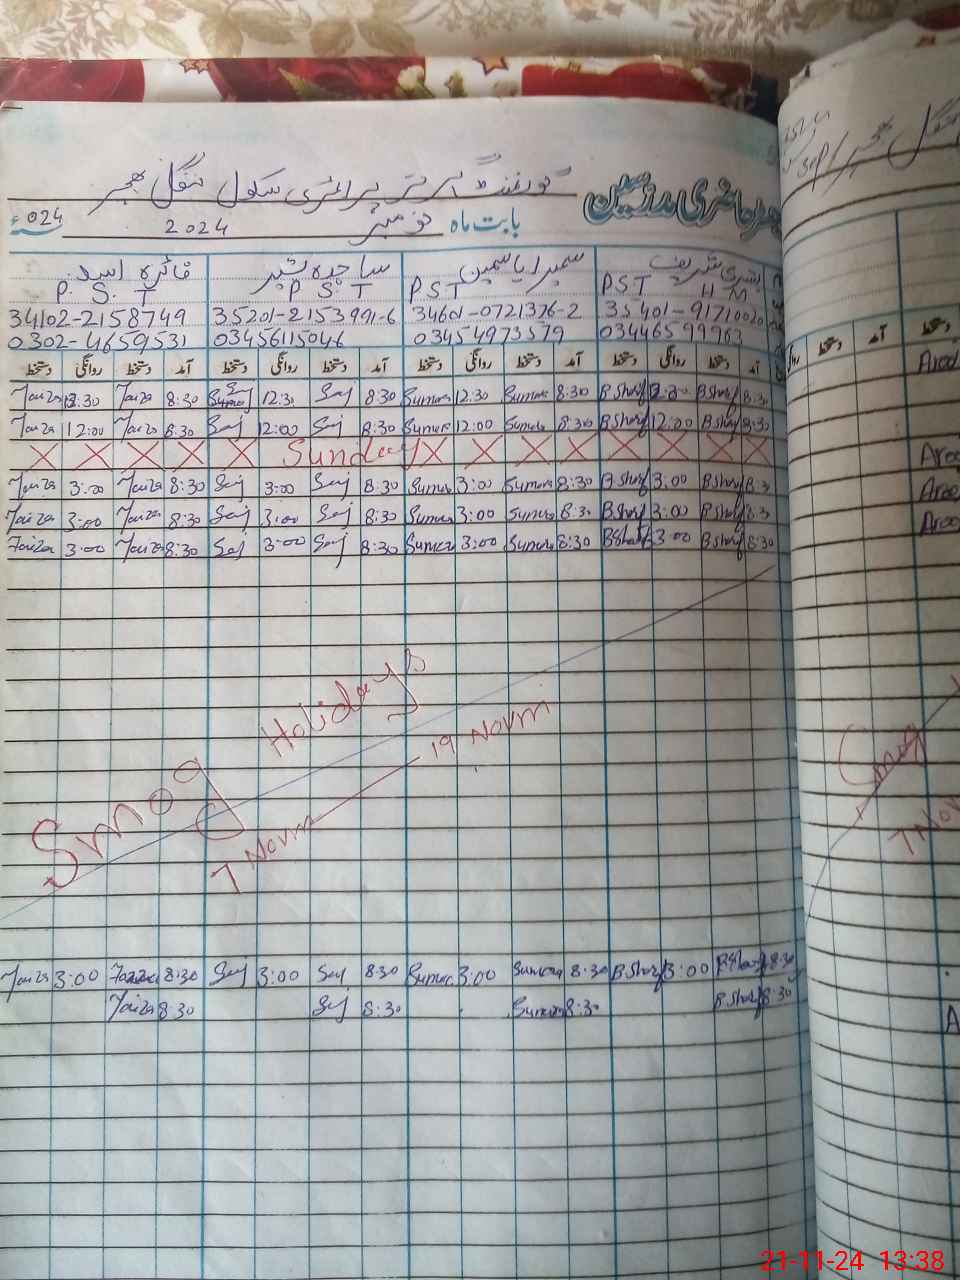 گورنمنٹ گرلز پرائمری سکول منگل ہیچر
رجسٹر حاضری مدرسین
بابت ماہ نومبر 2024 024ء
بشریٰ شریف سمیرا یاسمین ساجدہ بشیر فائزہ اسد
PST HM PST PST P.S.T
35401-91710020 34601-0721376-2 35201-2153991-6 34102-2158749
03446599963 03454973579 03456115046 0302-4659531
آمد دستخط روانگی دستخط آمد دستخط روانگی دستخط آمد دستخط روانگی دستخط آمد دستخط روانگی دستخط
Faiza 12:30 Faiza 8:30 Saj 12:30 Saj 8:30 Sumera 12:30 Sumera 8:30 B.Sharif 12:30 B.Sharif 8:30
Faiza 12:00 Faiza 8:30 Saj 12:00 Saj 8:30 Sumera 12:00 Sumera 8:30 B.Sharif 12:00 B.Sharif 8:30
X X X X X Sunday X X X X X X X X
Faiza 3:00 Faiza 8:30 Saj 3:00 Saj 8:30 Sumera 3:00 Sumera 8:30 B.Sharif 3:00 B.Sharif 8:30
Faiza 3:00 Faiza 8:30 Saj 3:00 Saj 8:30 Sumera 3:00 Sumera 8:30 B.Sharif 3:00 B.Sharif 8:30
Faiza 3:00 Faiza 8:30 Saj 3:00 Saj 8:30 Sumera 3:00 Sumera 8:30 B.Sharif 3:00 B.Sharif 8:30
Smog Holidays
7 Novm 19 Novm
Faiza 3:00 Faiza 8:30 Saj 3:00 Saj 8:30 Sumera 3:00 Sumera 8:30 B.Sharif 3:00 B.Sharif 8:30
Faiza 8:30 Saj 8:30 Sumera 8:30 B.Sharif 8:30
دستخط آمد دستخط
Smog
7 Nov
21-11-24 13:38